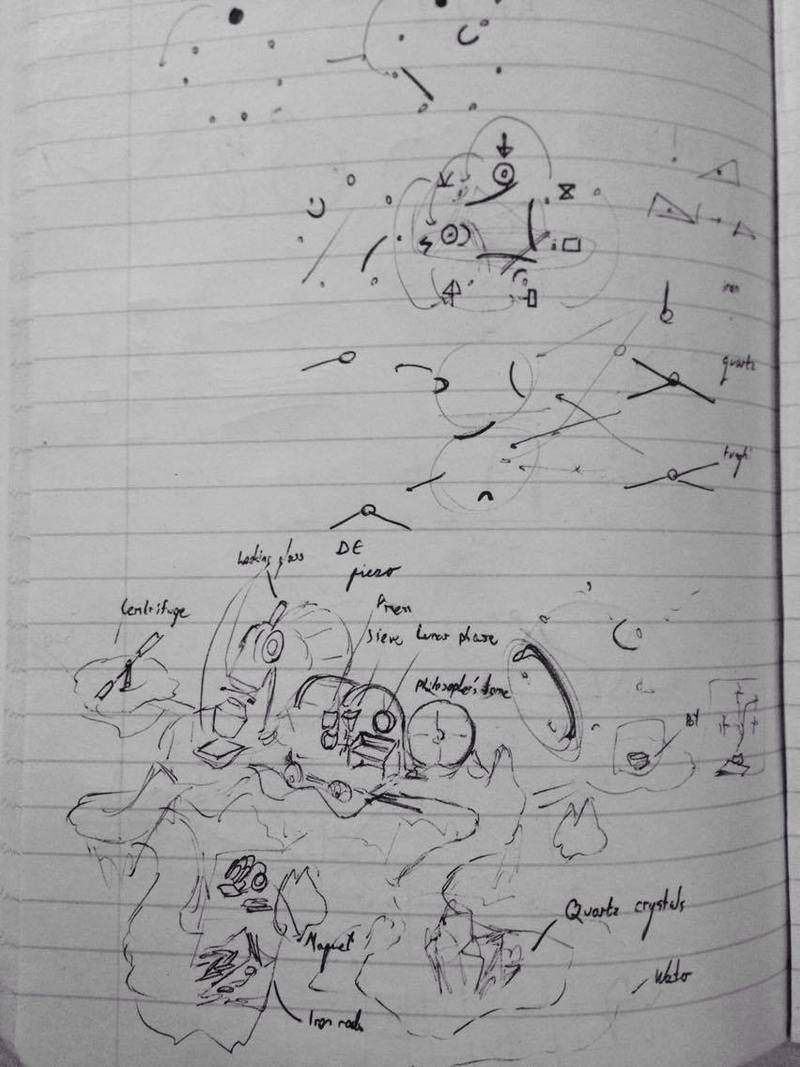 iron
quartz
DE
piezo
Looking glass
Centrifuge
Press
Sieve
Lunar phase
Philosopher's stone
Magnet
Quartz crystals
Water
Iron rods